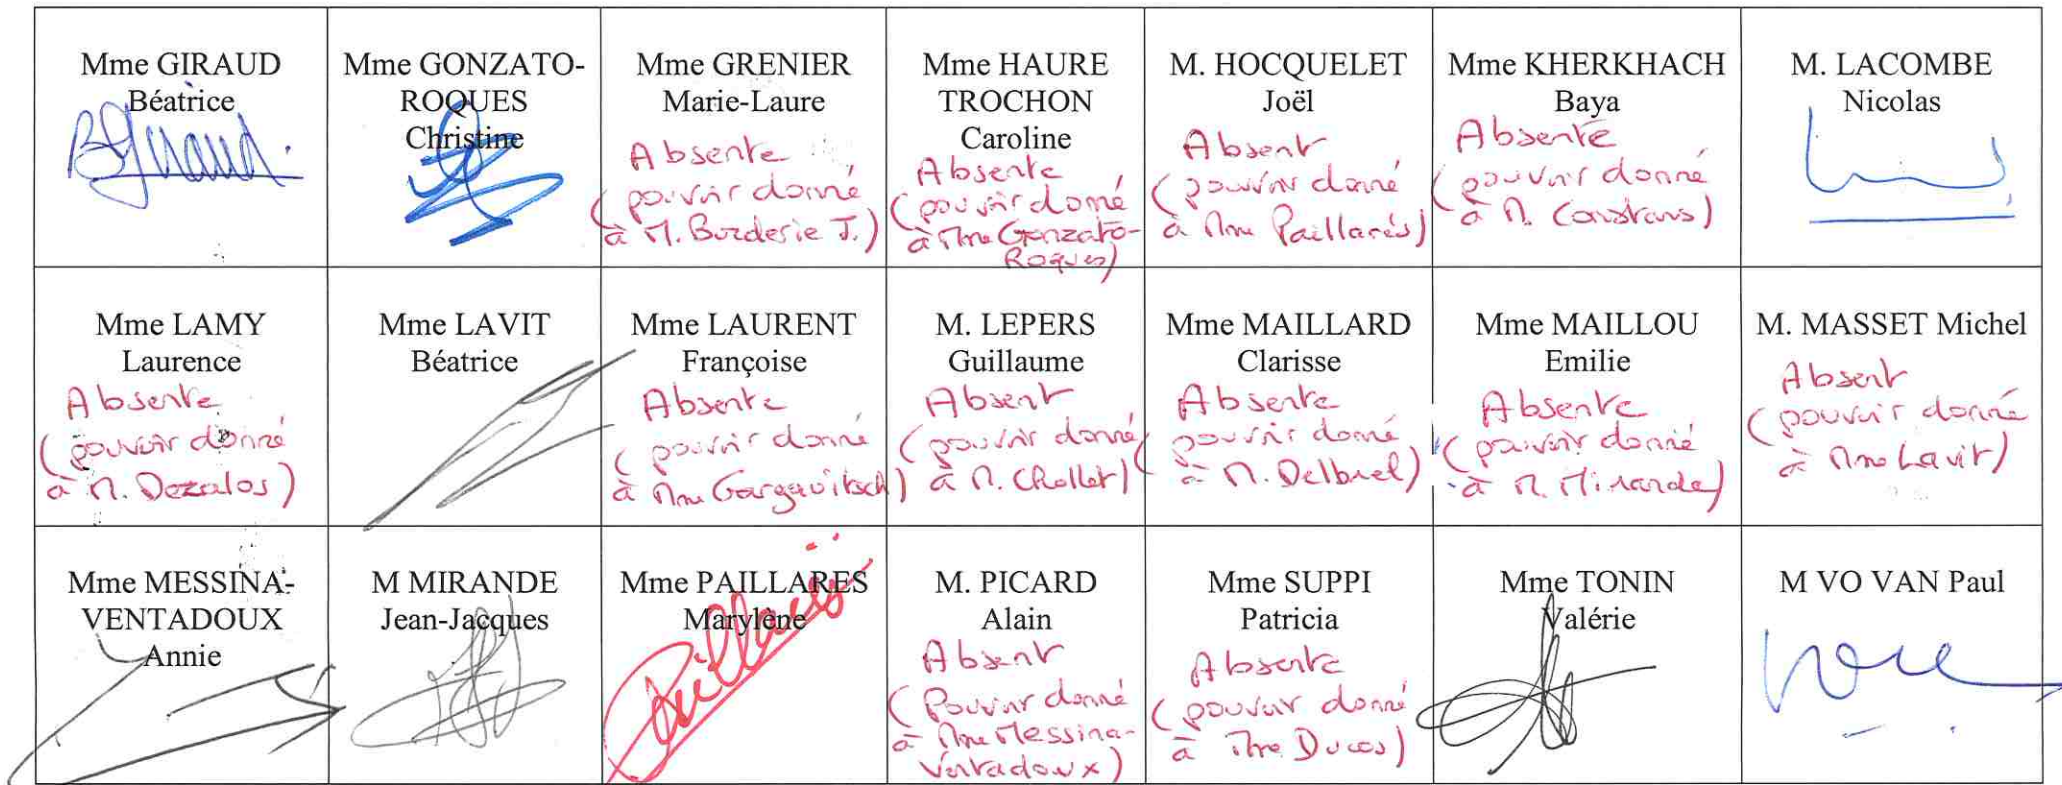 Mme GIRAUD
Béatrice
BGiraud.
Mme GONZATO-
ROQUES
Christine
Mme GRENIER
Marie-Laure
Absente
(pouvoir donné
à M. Burderie J.)
Mme HAURE
TROCHON
Caroline
Absente
(pouvoir donné
à Mme Gonzato-
Roques)
M. HOCQUELET
Joël
Absent
(pouvoir donné
à Mme Paillarés)
Mme KHERKHACH
Baya
Absente
(pouvoir donné
à M. Constans)
M. LACOMBE
Nicolas
Mme LAMY
Laurence
Absente
(pouvoir donné
à M. Dezalos)
Mme LAVIT
Béatrice
Mme LAURENT
Françoise
Absente
(pouvoir donné
à Mme Gargavitsch)
M. LEPERS
Guillaume
Absent
(pouvoir donné
à M. Chollet)
Mme MAILLARD
Clarisse
Absente
(pouvoir donné
à M. Delbrel)
Mme MAILLOU
Emilie
Absente
(pouvoir donné
à M. Mirande)
M. MASSET Michel
Absent
(pouvoir donné
à Mme Lavit)
Mme MESSINA-
VENTADOUX
Annie
M MIRANDE
Jean-Jacques
Mme PAILLARES
Marylène
Paillarès
M. PICARD
Alain
Absent
(Pouvoir donné
à Mme Messina-
Ventadoux)
Mme SUPPI
Patricia
Absente
(pouvoir donné
à Mme Ducos)
Mme TONIN
Valérie
M VO VAN Paul